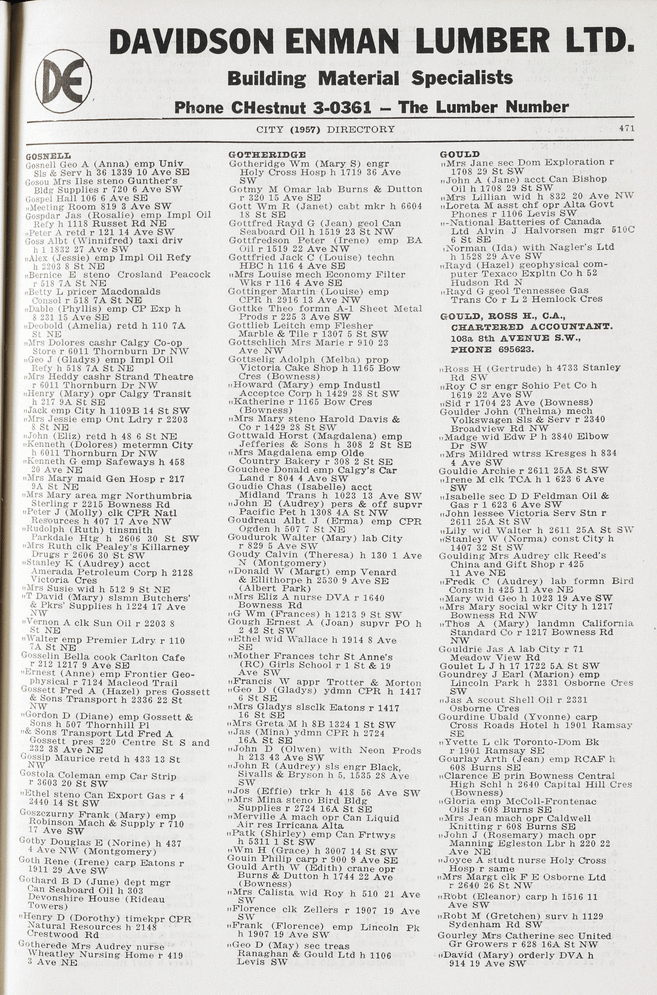 DE
DAVIDSON ENMAN LUMBER LTD.
Building Material Specialists
Phone CHestnut 3-0361 – The Lumber Number
CITY (1957) DIRECTORY
471
GOSNELL
Gosnell Geo A (Anna) emp Univ
Sls & Serv h 36 1339 10 Ave SE
Gosou Mrs Ilse steno Gunther's
Bldg Supplies r 720 6 Ave SW
Gospel Hall 106 6 Ave SE
"Meeting Room 819 3 Ave SW
Gospdar Jas (Rosalie) emp Impl Oil
Refy h 1118 Russet Rd NE
"Peter A retd r 121 14 Ave SW
Goss Albt (Winnifred) taxi driv
h 1 1832 27 Ave SW
"Alex (Jessie) emp Impl Oil Refy
h 2203 8 St NE
"Bernice E steno Crosland Peacock
r 518 7A St NE
"Betty L pricer Macdonalds
Consol r 518 7A St NE
"Dable (Phyllis) emp CP Exp h
8 231 15 Ave SW
"Deobold (Amelia) retd h 110 7A
St NE
"Mrs Dolores cashr Calgy Co-op
Store r 6011 Thornburn Dr NW
"Geo J (Gladys) emp Impl Oil
Refy h 518 7A St NE
"Mrs Heddy cashr Strand Theatre
r 6011 Thornburn Dr NW
"Henry (Mary) opr Calgy Transit
h 217 9A St NE
"Jack emp City h 1109B 14 St SW
"Mrs Jessie emp Ont Ldry r 2203
8 St NE
"John (Eliz) retd h 48 6 St NE
"Kenneth (Dolores) metermn City
h 6011 Thornburn Dr NW
"Kenneth G emp Safeways h 458
20 Ave NE
"Mrs Mary maid Gen Hosp r 217
9A St NE
"Mrs Mary area mgr Northumbria
Sterling r 2215 Bowness Rd
"Peter J (Molly) clk CPR Natl
Resources h 407 17 Ave NW
"Rudolph (Ruth) tinsmith
Parkdale Htg h 2606 30 St SW
"Mrs Ruth clk Pealey's Killarney
Drugs r 2606 30 St SW
"Stanley K (Audrey) acct
Amerada Petroleum Corp h 2128
Victoria Cres
"Mrs Susie wid h 512 9 St NE
"T David (Mary) slsmn Butchers'
& Pkrs' Supplies h 1224 17 Ave
NW
"Vernon A clk Sun Oil r 2203 8
St NE
"Walter emp Premier Ldry r 110
7A St NE
Gosselin Bella cook Carlton Cafe
r 212 1217 9 Ave SE
"Ernest (Anne) emp Frontier Geo-
physical r 7124 Macleod Trail
Gossett Fred A (Hazel) pres Gossett
& Sons Transport h 2336 22 St
NW
"Gordon D (Diane) emp Gossett &
Sons h 507 Thornhill Pl
"& Sons Transport Ltd Fred A
Gossett pres 220 Centre St S and
232 38 Ave NE
Gossip Maurice retd h 433 13 St
NW
Gostola Coleman emp Car Strip
r 3603 20 St SW
"Ethel steno Can Export Gas r 4
2440 14 St SW
Goszczurny Frank (Mary) emp
Robinson Mach & Supply r 710
17 Ave SW
Gotby Douglas E (Norine) h 437
4 Ave NW (Montgomery)
Goth Rene (Irene) carp Eatons r
1911 29 Ave SW
Gothard B D (June) dept mgr
Can Seaboard Oil h 303
Devonshire House (Rideau
Towers)
"Henry D (Dorothy) timekpr CPR
Natural Resources h 2148
Crestwood Rd
Gotherede Mrs Audrey nurse
Wheatley Nursing Home r 419
3 Ave NE
GOTHERIDGE
Gotheridge Wm (Mary S) engr
Holy Cross Hosp h 1719 36 Ave
SW
Gotmy M Omar lab Burns & Dutton
r 320 15 Ave SE
Gott Wm R (Janet) cabt mkr h 6604
18 St SE
Gottfred Rayd G (Jean) geol Can
Seaboard Oil h 1519 23 St NW
Gottfredson Peter (Irene) emp BA
Oil r 1519 22 Ave NW
Gottfried Jack C (Louise) techn
HBC h 116 4 Ave SE
"Mrs Louise mech Economy Filter
Wks r 116 4 Ave SE
Gottinger Martin (Louise) emp
CPR h 2916 13 Ave NW
Gottke Theo formn A-1 Sheet Metal
Prods r 225 3 Ave SW
Gottlieb Leitch emp Flesher
Marble & Tile r 1307 5 St SW
Gottschlich Mrs Marie r 910 23
Ave NW
Gottselig Adolph (Melba) prop
Victoria Cake Shop h 1165 Bow
Cres (Bowness)
"Howard (Mary) emp Industl
Acceptce Corp h 1429 28 St SW
"Katherine r 1165 Bow Cres
(Bowness)
"Mrs Mary steno Harold Davis &
Co r 1429 28 St SW
Gottwald Horst (Magdalena) emp
Jefferies & Sons h 308 2 St SE
"Mrs Magdalena emp Olde
Country Bakery r 308 2 St SE
Gouchee Donald emp Calgy's Car
Land r 804 4 Ave SW
Goudie Chas (Isabelle) acct
Midland Trans h 1023 13 Ave SW
"John E (Audrey) pers & off supvr
Pacific Pet h 1308 4A St NW
Goudreau Albt J (Erma) emp CPR
Ogden h 507 7 St NE
Goudurok Walter (Mary) lab City
r 829 5 Ave SW
Goudy Calvin (Theresa) h 130 1 Ave
N (Montgomery)
"Donald W (Margt) emp Venard
& Ellithorpe h 2530 9 Ave SE
(Albert Park)
"Mrs Eliz A nurse DVA r 1640
Bowness Rd
"G Wm (Frances) h 1213 9 St SW
Gough Ernest A (Joan) supvr PO h
2 42 St SW
"Ethel wid Wallace h 1914 8 Ave
SE
"Mother Frances tchr St Anne's
(RC) Girls School r 1 St & 19
Ave SW
"Francis W appr Trotter & Morton
"Geo D (Gladys) ydmn CPR h 1417
6 St SE
"Mrs Gladys slsclk Eatons r 1417
16 St SE
"Mrs Greta M h 8B 1324 1 St SW
"Jas (Mina) ydmn CPR h 2724
16A St SE
"John D (Olwen) with Neon Prods
h 213 43 Ave SW
"John R (Audrey) sls engr Black,
Sivalls & Bryson h 5, 1535 28 Ave
SW
"Jos (Effie) trkr h 418 56 Ave SW
"Mrs Mina steno Bird Bldg
Supplies r 2724 16A St SE
"Merville A mach opr Can Liquid
Air res Irricana Alta
"Patk (Shirley) emp Can Frtwys
h 5311 1 St SW
"Wm H (Grace) h 3007 14 St SW
Gouin Philip carp r 900 9 Ave SE
Gould Arth W (Edith) crane opr
Burns & Dutton h 1744 22 Ave
(Bowness)
"Mrs Calista wid Roy h 510 21 Ave
SW
"Florence clk Zellers r 1907 19 Ave
SW
"Frank (Florence) emp Lincoln Pk
h 1907 19 Ave SW
"Geo D (May) sec treas
Ranaghan & Gould Ltd h 1106
Levis SW
GOULD
"Mrs Jane sec Dom Exploration r
1708 29 St SW
"John A (Jane) acct Can Bishop
Oil h 1708 29 St SW
"Mrs Lillian wid h 832 20 Ave NW
"Loreta M asst chf opr Alta Govt
Phones r 1106 Levis SW
"-National Batteries of Canada
Ltd Alvin J Halvorsen mgr 510C
6 St SE
"Norman (Ida) with Nagler's Ltd
h 1528 29 Ave SW
"Rayd (Hazel) geophysical com-
puter Texaco Expltn Co h 52
Hudson Rd N
"Rayd G geol Tennessee Gas
Trans Co r L 2 Hemlock Cres
GOULD, ROSS H., C.A.,
CHARTERED ACCOUNTANT.
108a 8th AVENUE S.W.,
PHONE 695623.
"Ross H (Gertrude) h 4733 Stanley
Rd SW
"Roy C sr engr Sohio Pet Co h
1619 22 Ave SW
"Sid r 1704 23 Ave (Bowness)
Goulder John (Thelma) mech
Volkswagen Sls & Serv r 2340
Broadview Rd NW
"Madge wid Edw P h 3840 Elbow
Dr SW
"Mrs Mildred wtrss Kresges h 834
4 Ave SW
Gouldie Archie r 2611 25A St SW
"Irene M clk TCA h 1 623 6 Ave
SW
"Isabelle sec D D Feldman Oil &
Gas r 1 623 6 Ave SW
"John lessee Victoria Serv Stn r
2611 25A St SW
"Lily wid Walter h 2611 25A St SW
"Stanley W (Norma) const City h
1407 32 St SW
Goulding Mrs Audrey clk Reed's
China and Gift Shop r 425
11 Ave NE
"Fredk C (Audrey) lab formn Bird
Constn h 425 11 Ave NE
"Mary wid Geo h 1023 19 Ave SW
"Mrs Mary social wkr City h 1217
Bowness Rd NW
"Thos A (Mary) landmn California
Standard Co r 1217 Bowness Rd
NW
Gouldrie Jas A lab City r 71
Meadow View Rd
Goulet L J h 17 1722 5A St SW
Goundrey J Earl (Marion) emp
Lincoln Park h 2331 Osborne Cres
SW
"Jas A scout Shell Oil r 2331
Osborne Cres
Gourdine Ubald (Yvonne) carp
Cross Roads Hotel h 1901 Ramsay
SE
"Yvette L clk Toronto-Dom Bk
r 1901 Ramsay SE
Gourlay Arth (Jean) emp RCAF h
608 Burns SE
"Clarence E prin Bowness Central
High Schl h 2640 Capital Hill Cres
(Bowness)
"Gloria emp McColl-Frontenac
Oils r 608 Burns SE
"Mrs Jean mach opr Caldwell
Knitting r 608 Burns SE
"John J (Rosemary) mach opr
Manning Egleston Lbr h 220 22
Ave NE
"Joyce A studt nurse Holy Cross
Hosp r same
"Mrs Margt clk F E Osborne Ltd
r 2640 26 St NW
"Robt (Eleanor) carp h 1516 11
Ave SW
"Robt M (Gretchen) surv h 1129
Sydenham Rd SW
Gourley Mrs Catherine sec United
Gr Growers r 628 16A St NW
"David (Mary) orderly DVA h
914 19 Ave SW